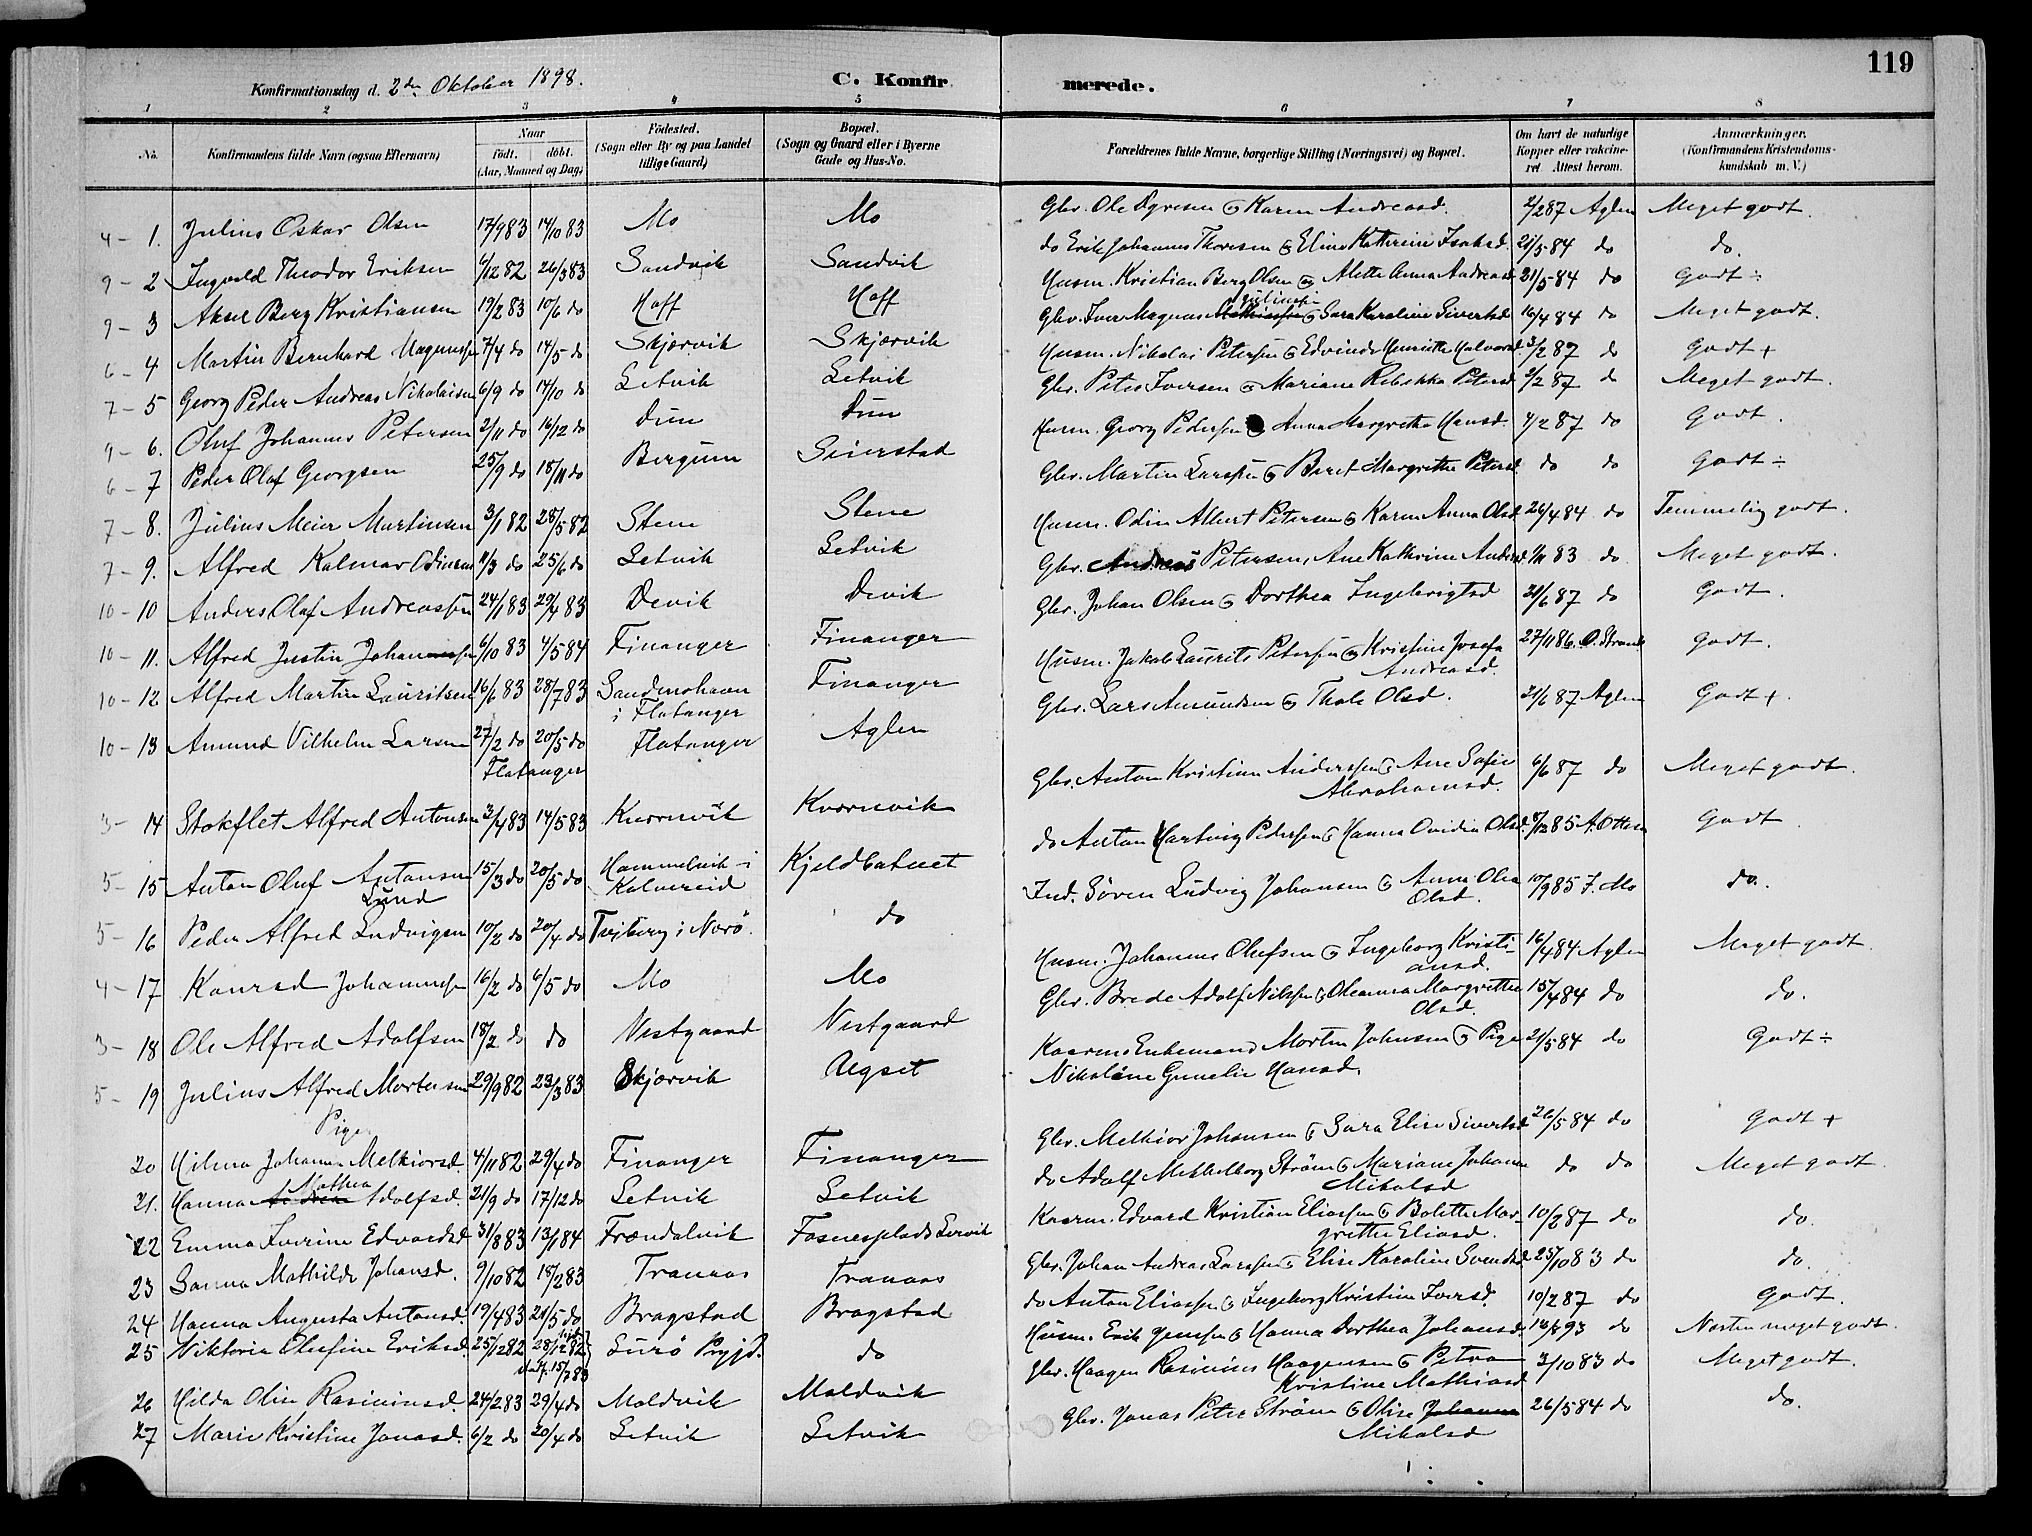 119
Konfirmationsdag d. 2den Oktober 1898.
C. Konfirmerede.
1 2 3 4 5 6 7 8
No. | Konfirmandens fulde Navn (ogsaa Efternavn) | Naar født. døbt. (Aar, Maaned og Dag) | Fødested. (Sogn eller By og paa Landet tillige Gaard) | Bopæl. (Sogn og Gaard eller i Byerne Gade og Hus-No.) | Forældrenes fulde Navne, borgerlige Stilling (Næringsvei) og Bopæl. | Om havt de naturlige Kopper eller vakcineret Attest herom. | Anmærkninger. (Konfirmandens Kristendomskundskab m. V.)
4 – 1. Julius Oskar Olsen 17/9 83 14/10 83 Mo Mo Gbr. Ole Dyresen & Karen Andreasd. 2/2 87 Aglen Meget godt.
9 – 2 Ingvald Theodor Eriksen 6/12 82 26/3 83 Sandvik Sandvik do Erik Johannes Thoresen & Eline Kathrine Isaksd. 21/5 84 do do.
9 – 3 Aksel Berg Kristiansen 19/2 83 10/6 do Hoff Hoff Husm. Kristian Berg Olsen & Alette Anna Andreasd. 21/5 84 do Godt ÷
6 – 4 Martin Bernhard Magnussen 7/4 do 14/5 do Skjærvik Skjærvik Gbr. Iver Magnus & Sara Karoline Sivertsd 16/4 84 do Meget godt.
7 – 5 Georg Peder Andreas Nikolaisen 6/9 do 14/10 do Setvik Setvik Husm. Nikolai Petersen & Edvinde Henriette Halvorsd. 3/2 87 do Godt +
9 – 6. Oluf Johannes Petersen 2/11 do 16/12 do Dun Dun Gbr. Peter Iversen & Mariane Rebekka Petersd 2/2 87 do Meget godt.
6 – 7 Peder Olaf Georgsen 25/9 do 18/11 do Bergum Seierstad Husm. Georg Pedersen & Anna Margrethe Hansd. 4/2 87 do Godt.
7 – 8. Julius Meier Martinsen 3/1 82 28/5 82 Stene Stene Gbr. Martin Larssen & Beret Margrethe Petersd. do do Godt ÷
7 – 9. Alfred Kalmar Odinsen 11/3 do 25/6 do Setvik Setvik Husm. Odin Albert Petersen & Karen Anna Olsd 26/4 84 do Temmelig godt.
10 – 10 Anders Olaf Andreassen 24/1 83 29/4 83 Devik Devik Gbr. Andreas Petersen, Ane Kathrine Andersd 1/11 83 do Meget godt.
10 – 11. Alfred Justin Johansen 6/10 83 4/5 84 Finanger Finanger Gbr. Johan Olsen & Dorthea Ingebrigtsd 21/6 87 do Godt.
10 – 12 Alfred Martin Lauritsen 16/6 83 28/7 83 Sandmohavn i Flatanger Finanger Husm. Jakob Laurits Petersen & Kristine Josefa Andreasd. 27/11 86. O. Strand Godt.
10 – 13 Amund Vilhelm Larsen 27/2 do 20/5 do Flatanger Flatanger Aglen Gbr. Lars Amundsen & Thale Olsd. 21/6 87 Aglen Godt +
3 – 14 Stokflet Alfred Antonsen 3/4 83 14/5 83 Kvernvik Kvernvik Gbr. Anton Kristian Anderssen & Ane Sofie Abrahamsd. 6/6 87 do Meget godt.
5 – 15 Anton Oluf Antonsen Lund 15/3 do 20/5 do Hammelvik i Kolvereid Kjeldbotnet do Anton Hartvig Pedersen & Hanna Ovidia Olsd. 8/12 85 A. Ottesen Godt
5 – 16 Peder Alfred Ludvigsen 10/2 do 20/4 do i Nærø. do Ind. Søren Ludvig Johansen & Anne Olea Olsd. 10/9 85 J. Mo do.
4 – 17 Konrad Johannessen 16/2 do 6/5 do Mo Mo Husm. Johannes Olufsen & Ingeborg Kristiansd. 16/4 84 Aglen Meget godt.
3 – 18 Ole Alfred Adolfsen 18/2 do do Vestgaard Vestgaard Gbr. Brede Adolf Nilssen & Oleanna Margrethe Olsd. 15/4 84 do do.
5 – 19 Julius Alfred Mortensen 29/9 82 23/3 83 Skjærvik Aegset Kaarm. Enkemand Morten Johnsen & Pige Nikoline Gunelie Hansd. 21/5 84 do Godt ÷
Piger
20 Hilma Johanna Melkiorsd. 4/11 82 29/4 do Finanger Finanger Gbr. Melkior Johansen & Sara Elise Sivertsd 26/5 84 do Godt +
21. Hanna Mathea Adolfsd. 21/9 do 17/12 do Setvik Setvik do Adolf Mekkelborg Strøm & Mariane Johanna Mikalsd do do Meget godt.
22 Emma Iverine Edvardsd 31/8 83 13/1 84 Frændalvik Fosnesplads Kaarm. Edvard Kristian Eliassen & Bolette Margrethe Eliasd. 10/2 87 do do.
23 Sanna Mathilde Johansd. 9/10 82 18/2 83 Tranaas Tranaas Gbr. Johan Andreas Larssen & Elise Karoline Svendsd. 25/10 83 do do.
24 Hanna Augusta Antonsd. 19/4 83 21/5 do Bragstad Bragstad do Anton Eliassen & Ingeborg Kristine Iversd. 10/2 87 do Godt.
25 Viktoria Olufine Eriksd. 25/12 82 28/12 82 stadf. 15/7 83 Surø do Husm. Erik Jenssen & Hanna Dorthea Johansd. 93 do Næsten meget godt.
26 Hilda Olin Rasinusd. 24/2 83 29/4 do Moldvik Moldvik Gbr. Haagen Rasinius Haagensen & Petra Kristine Mathiasd 3/10 83 do Meget godt.
27 Marie Kristine Jonasd. 6/2 do 20/4 do Setvik Setvik Gbr. Jonas Peter Strøm & Olise Johanna Mikalsd 26/5 84 do do.